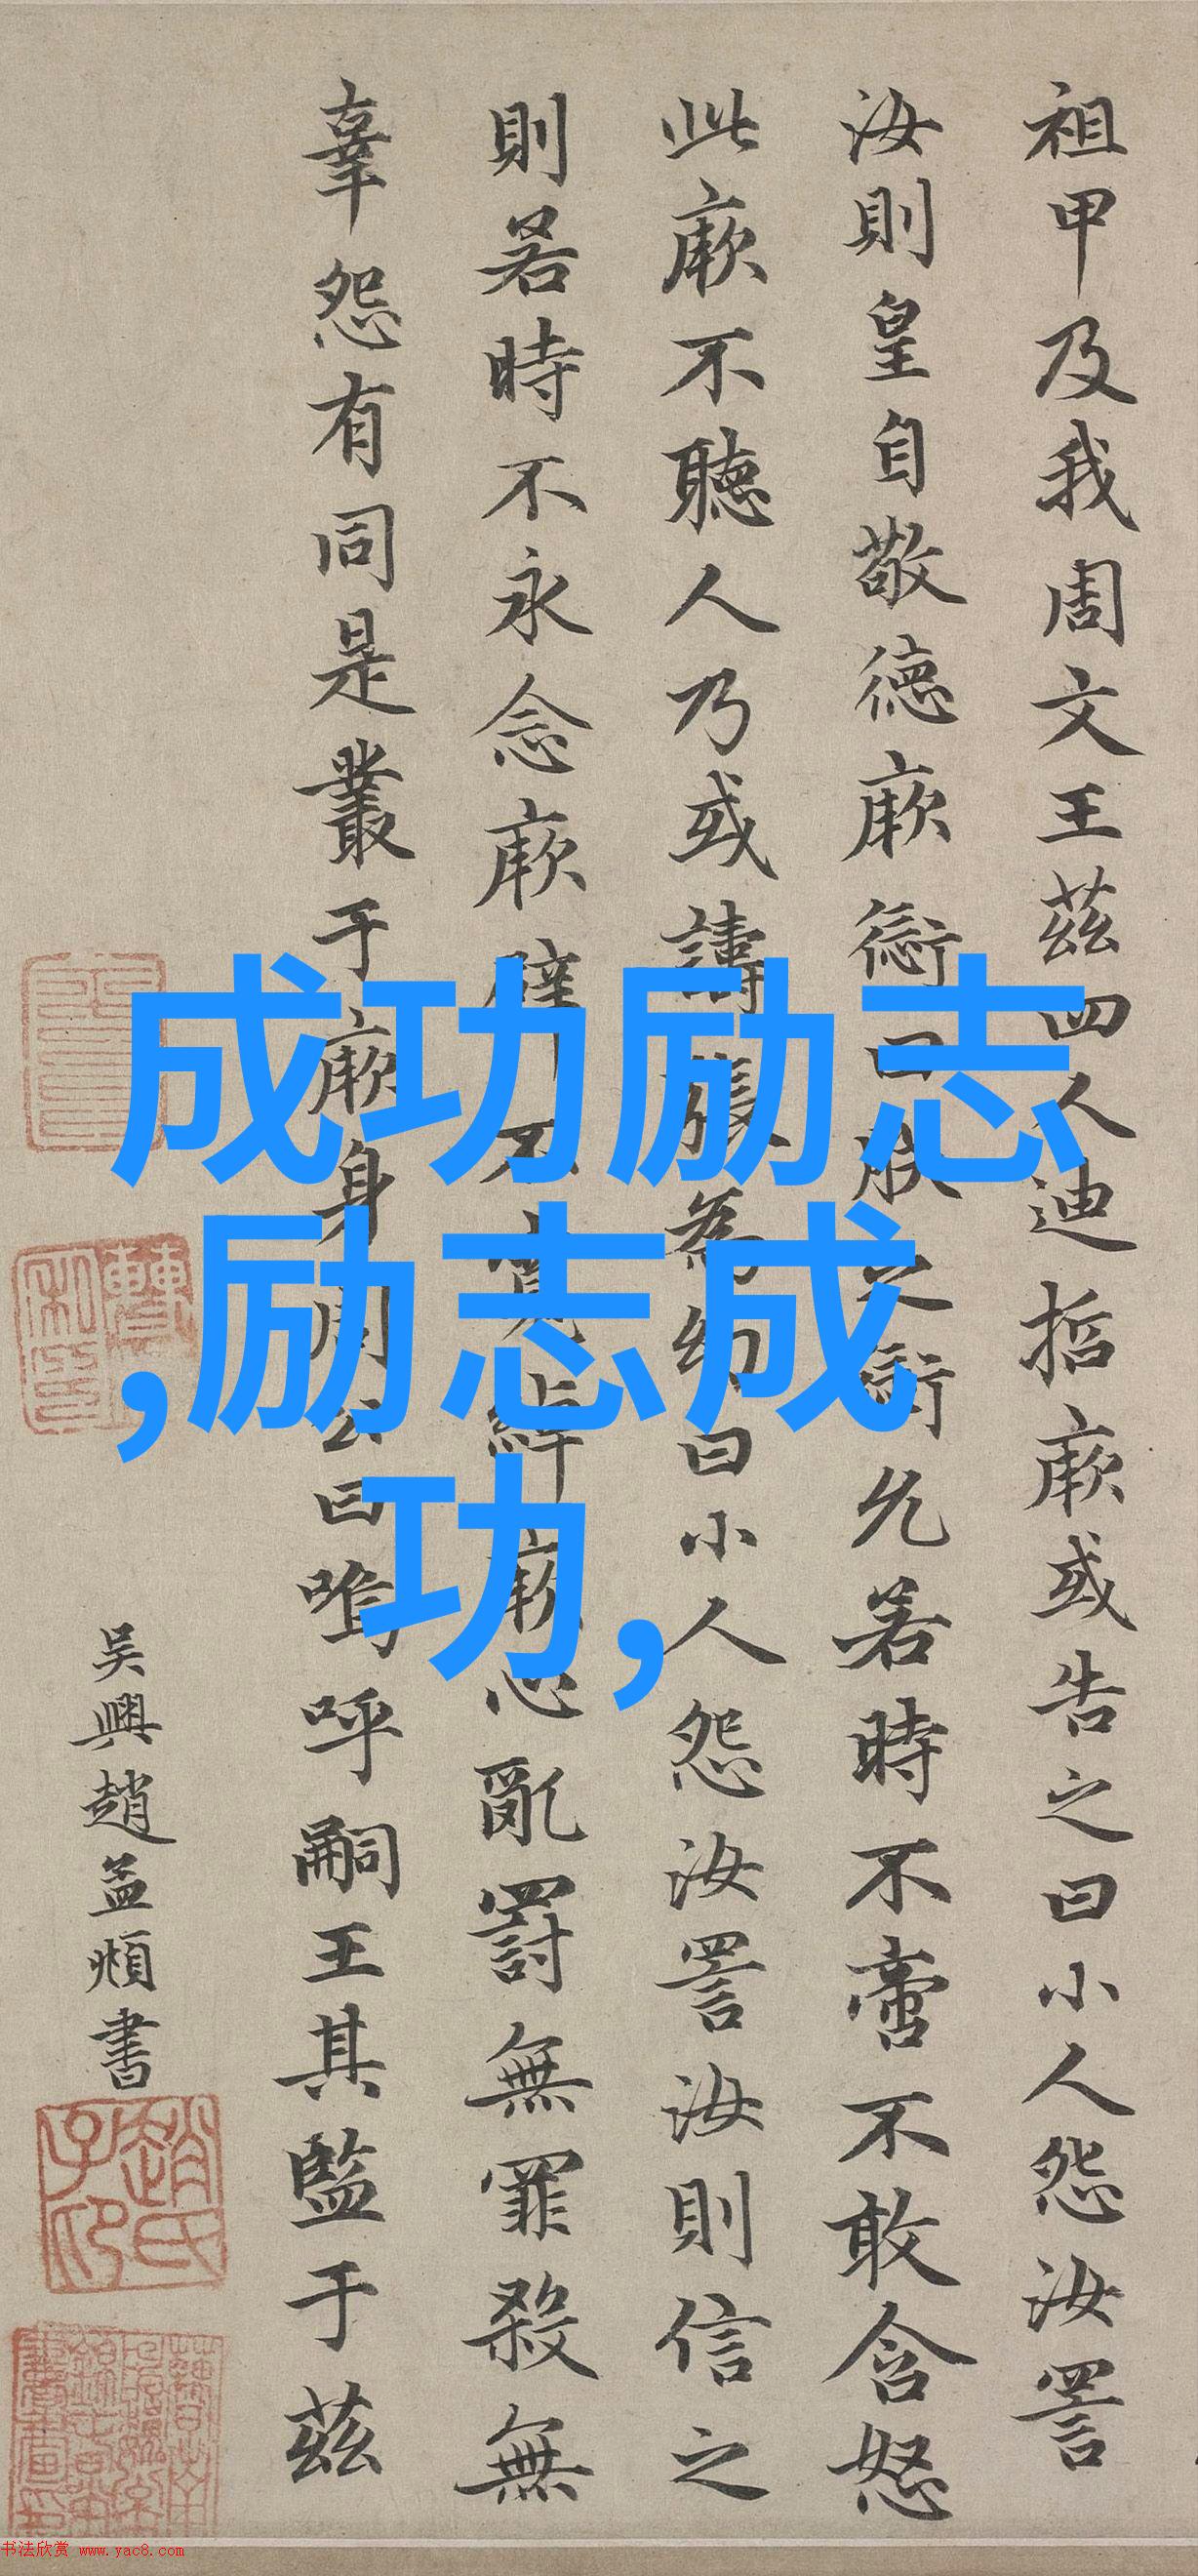 祖甲及我周文王茲四人迪哲厥或告之曰小人怨汝詈
汝則皇自敬德厥愆曰朕之愆允若時不啻不敢含怒
此厥不聽人乃或譸張為幻曰小人怨汝詈汝則信之
則若時不永念厥辟不寬綽厥心亂罰無罪殺無
辜怨有同是叢于厥身周公曰嗚呼嗣王其監于茲
吳興趙孟頫書
趙氏子昂
成功励志
,励志成
功,
书法欣赏 www.yac8.com